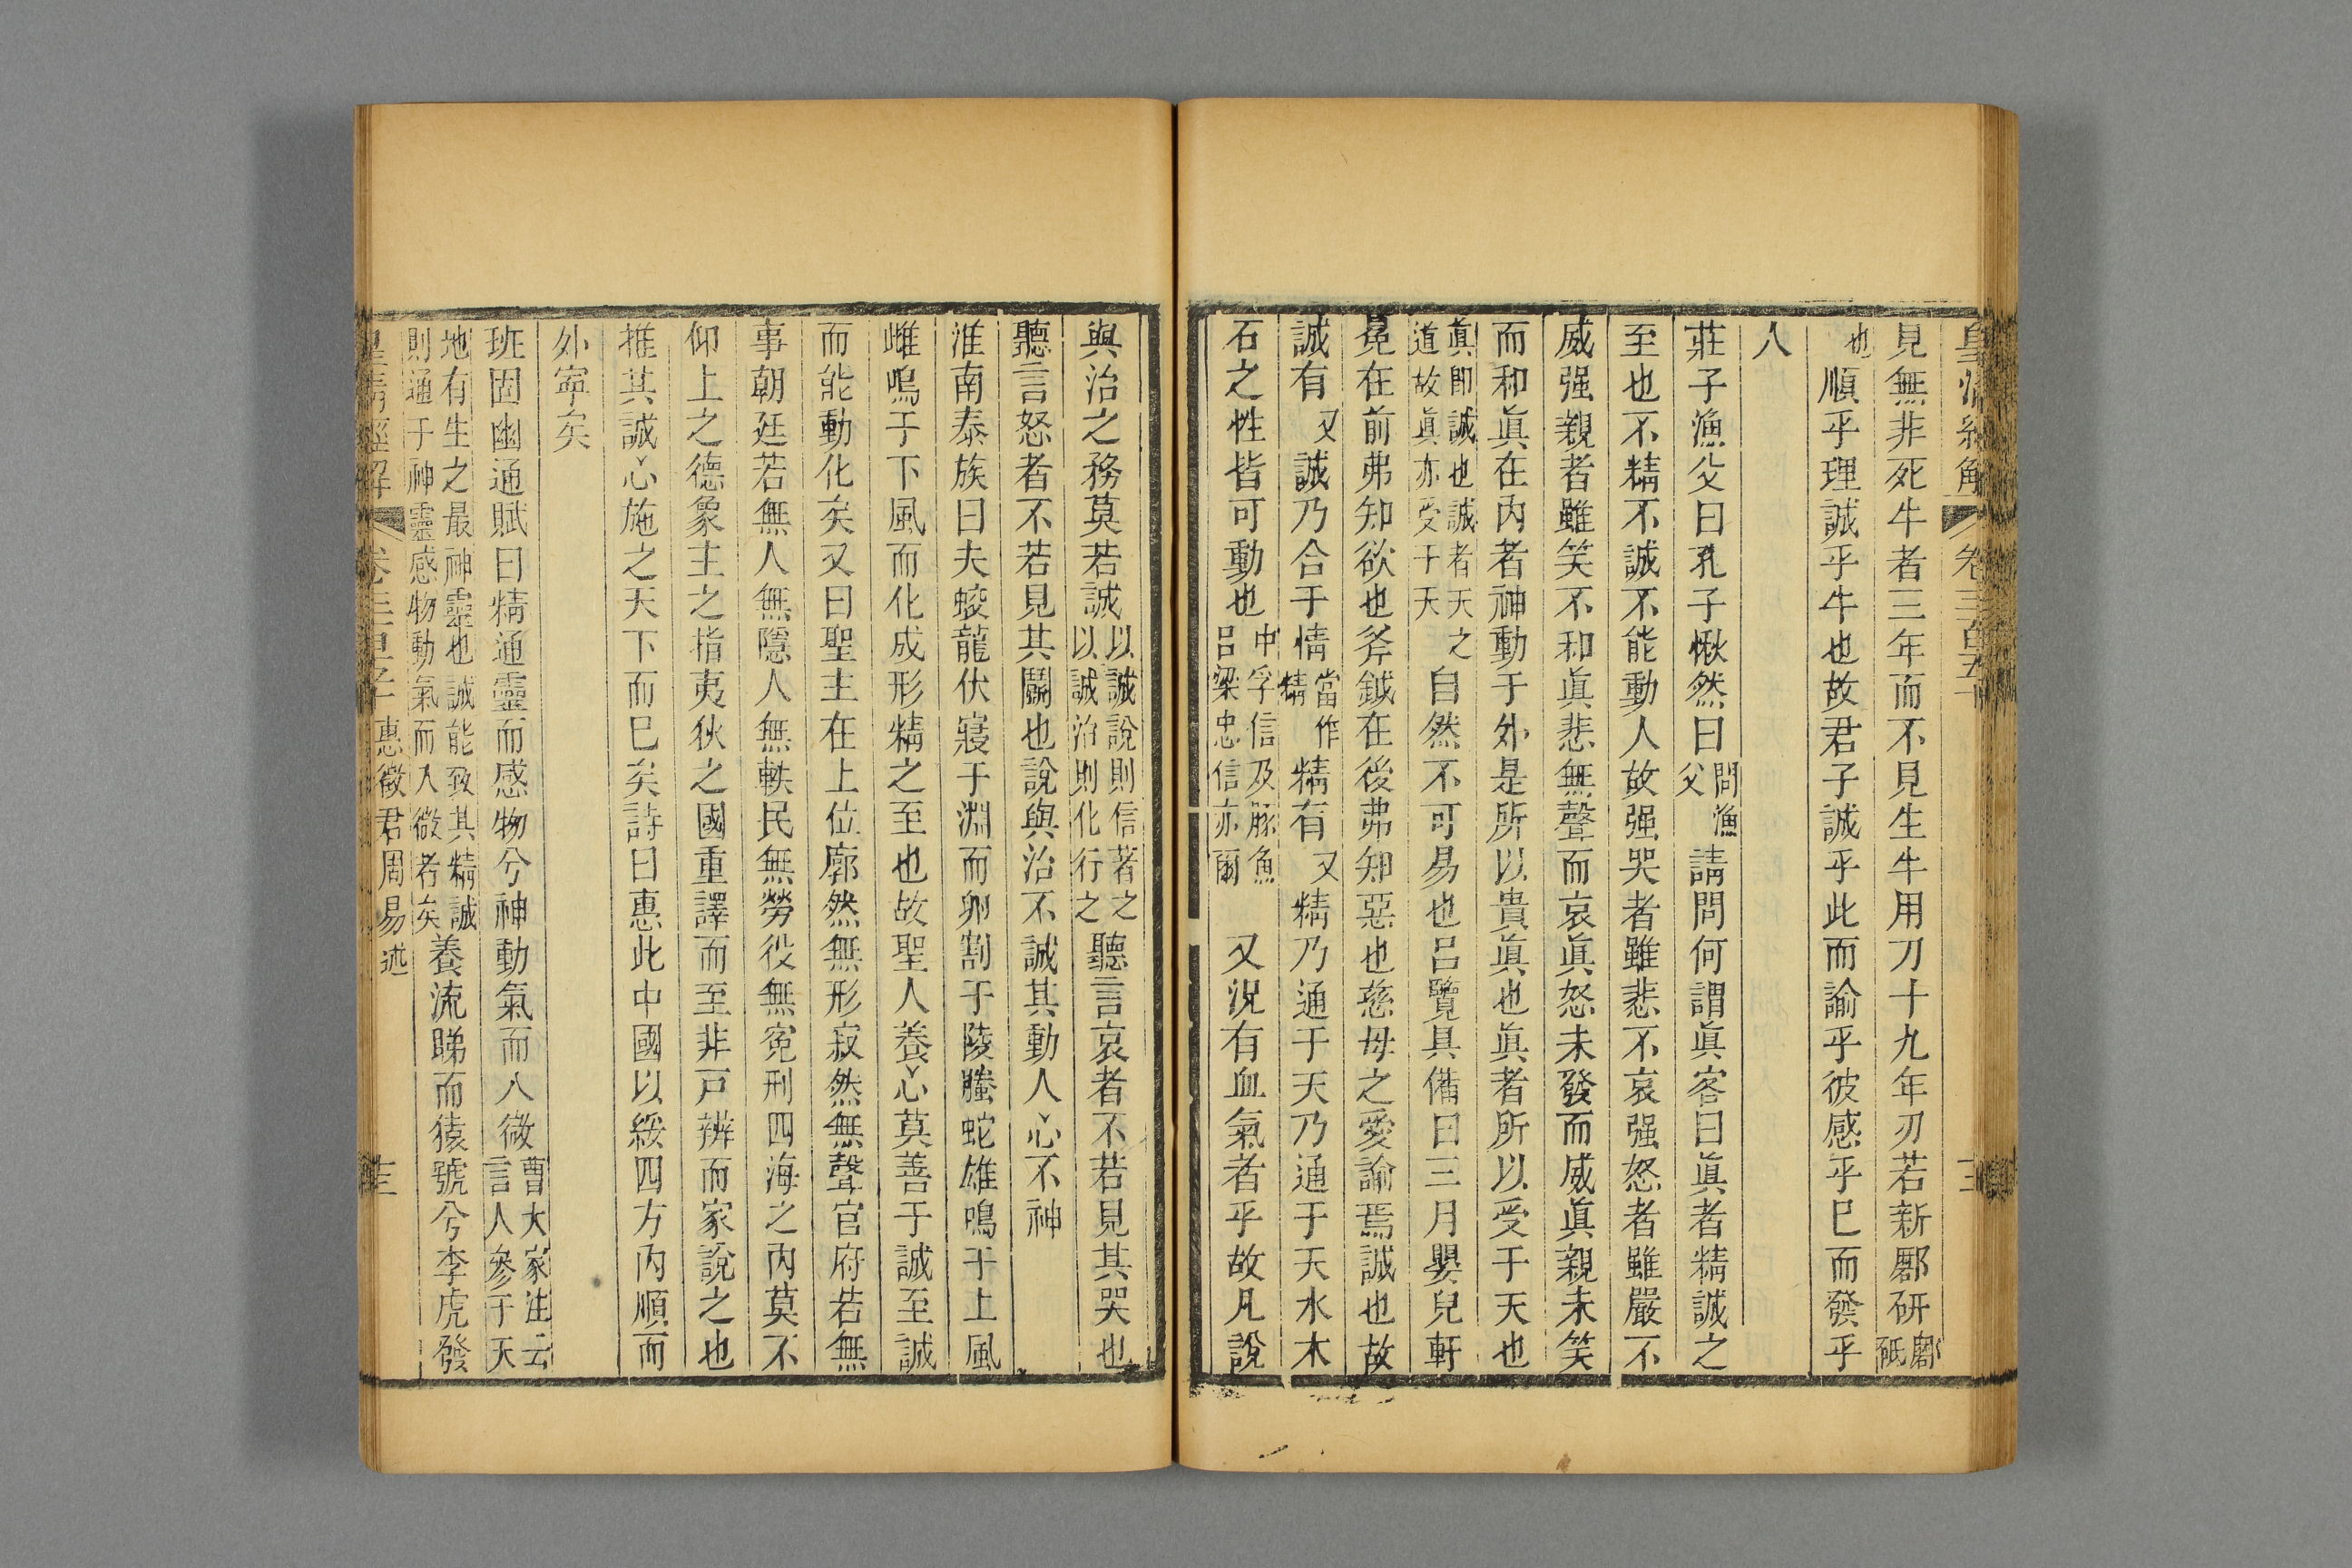 皇清經解 卷三百五十
見無非死牛者三年而不見生牛用刀十九年刃若新鄌研鄌砥
也順乎理誠乎牛也故君子誠乎此而諭乎彼感乎已而發乎
人
莊子漁父曰孔子愀然曰問漁父請問何謂眞客曰眞者精誠之
至也不精不誠不能動人故强哭者雖悲不哀强怒者雖嚴不
威强親者雖笑不和眞悲無聲而哀眞怒未發而威眞親未笑
而和眞在內者神動于外是所以貴眞也眞者所以受于天也
眞卽誠也誠者天之道故眞亦受于天自然不可易也呂覽具備曰三月嬰兒軒
冕在前弗知欲也斧鉞在後弗知惡也慈母之愛諭焉誠也故
誠有又誠乃合于情當作精精有又精乃通于天乃通于天水木
石之性皆可動也中孚信及豚魚呂梁忠信亦爾又況有血氣者乎故凡說
與治之務莫若誠以誠說則信著之以誠治則化行之聽言哀者不若見其哭也
聽言怒者不若見其鬭也說與治不誠其動人心不神
淮南泰族曰夫蛟龍伏寢于淵而卵割于陵螣蛇雄鳴于上風
雌鳴于下風而化成形精之至也故聖人養心莫善于誠至誠
而能動化矣又曰聖主在上位廓然無形寂然無聲官府若無
事朝廷若無人無隱人無軼民無勞役無寃刑四海之內莫不
仰上之德象主之指夷狄之國重譯而至非戸辨而家說之也
推其誠心施之天下而巳矣詩曰惠此中國以綏四方內順而
外寧矣
班固幽通賦曰精通靈而感物兮神動氣而入微曹大家注云言人參于天
地有生之最神靈也誠能致其精誠則通于神靈感物動氣而入微者矣養流睇而猿號兮李虎發
皇清經解 卷三百五十 惠徵君周易述 十三